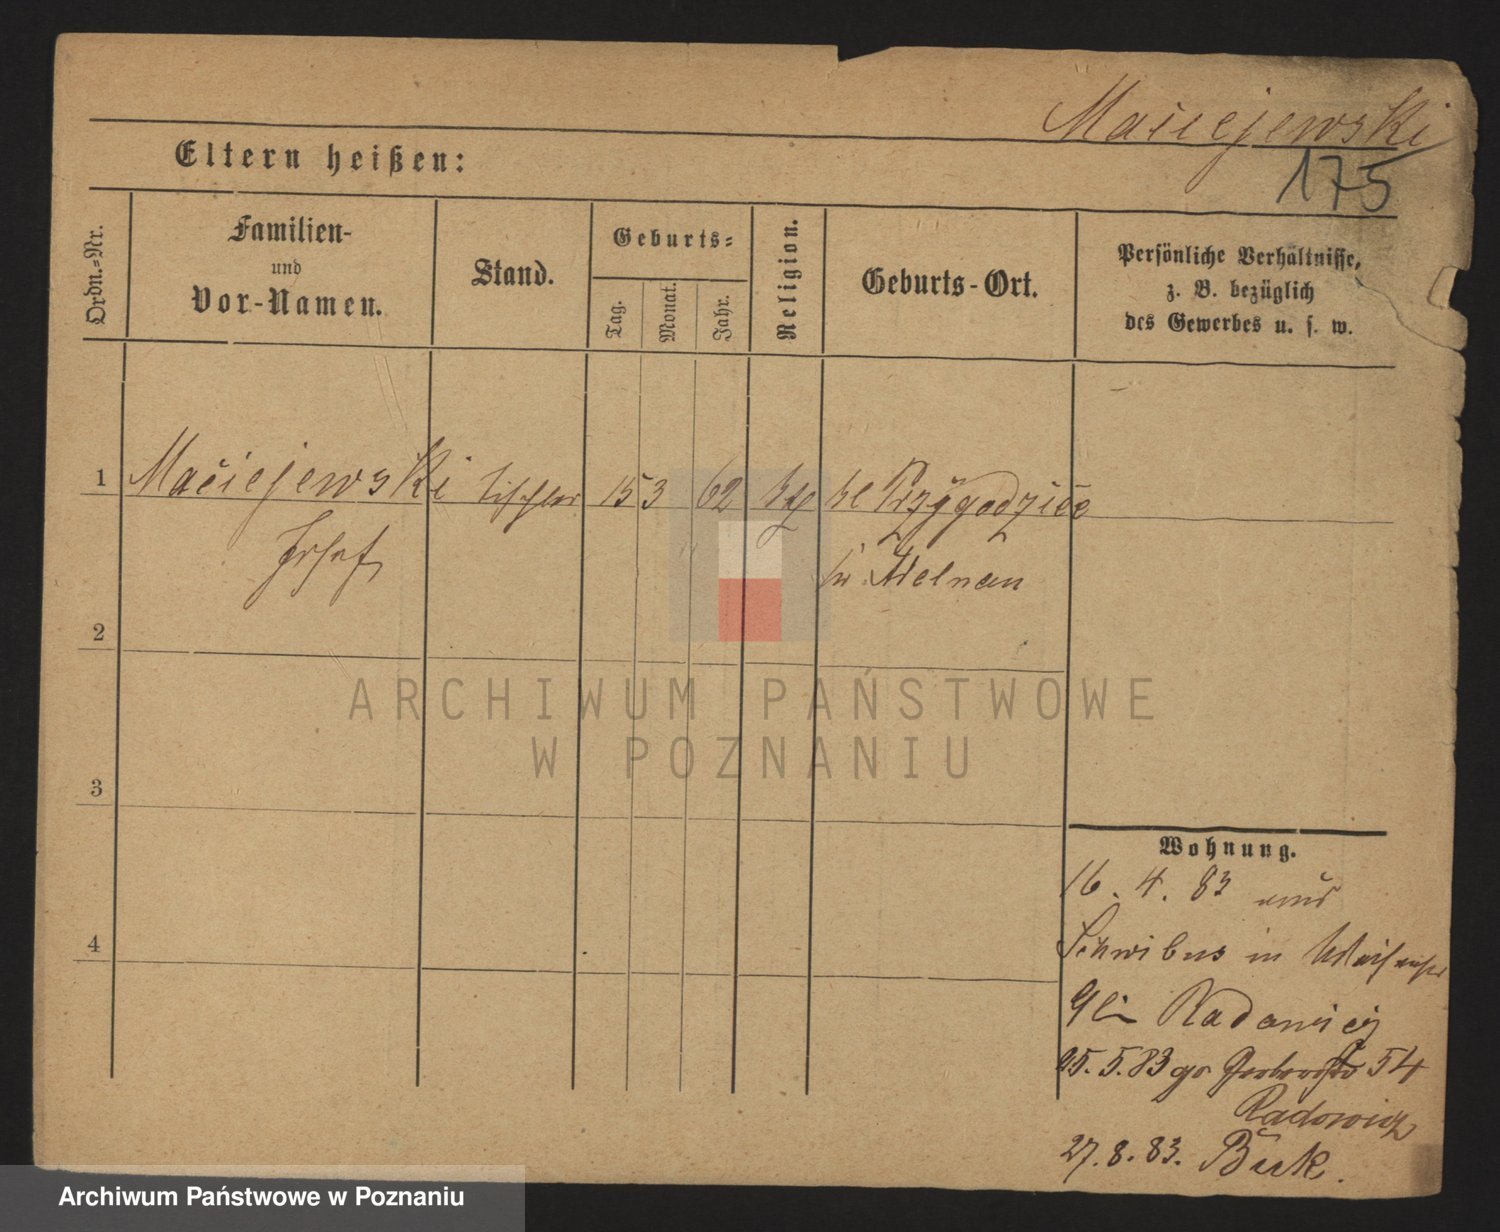 Maciejewski
175
Eltern heißen:
Ordn.-Nr.
Familien-
und
Vor-Namen.
Stand.
Geburts-
Tag.
Monat.
Jahr.
Religion.
Geburts-Ort.
Persönliche Verhältnisse,
z. B. bezüglich
des Gewerbes u. s. w.
1 Maciejewski Tischler 15 3 62 kth Kl Przygodzice
Josef
Kr. Adelnau
2
ARCHIWUM PAŃSTWOWE
W POZNANIU
3
Wohnung.
16. 4. 83 aus
4
Schwibus in
Radowicz
25. 5. 83 Gerberstr 54
Radowicz
27. 8. 83. Buk.
Archiwum Państwowe w Poznaniu